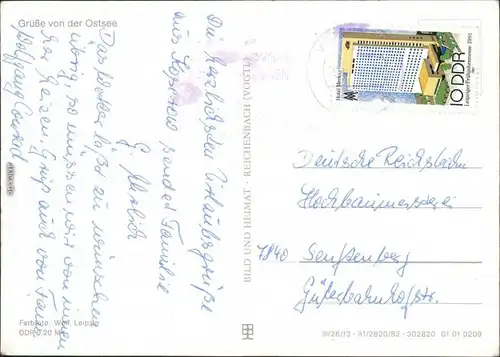 Grüße von der Ostsee
Die herzlichsten Urlaubsgrüße
aus Koperow sendet Familie
G.
Das Wetter läßt zu wünschen
übrig, so müssen wir von innen
Gruß auch von Fam.
Wolfgang Conrad
Farbfoto: Wolf, Leipzig
DDR 0,20 M
BILD UND HEIMAT REICHENBACH (VOGTL)
10 DDR
Leipziger Frühjahrsmesse 1982
Hotel Merkur
Deutsche Reichsbahn
Hochbaumeisterei
7840 Senftenberg
Güterbahnhofstr.
III/26/13 - A1/2820/82 - 302820 01 01 0209